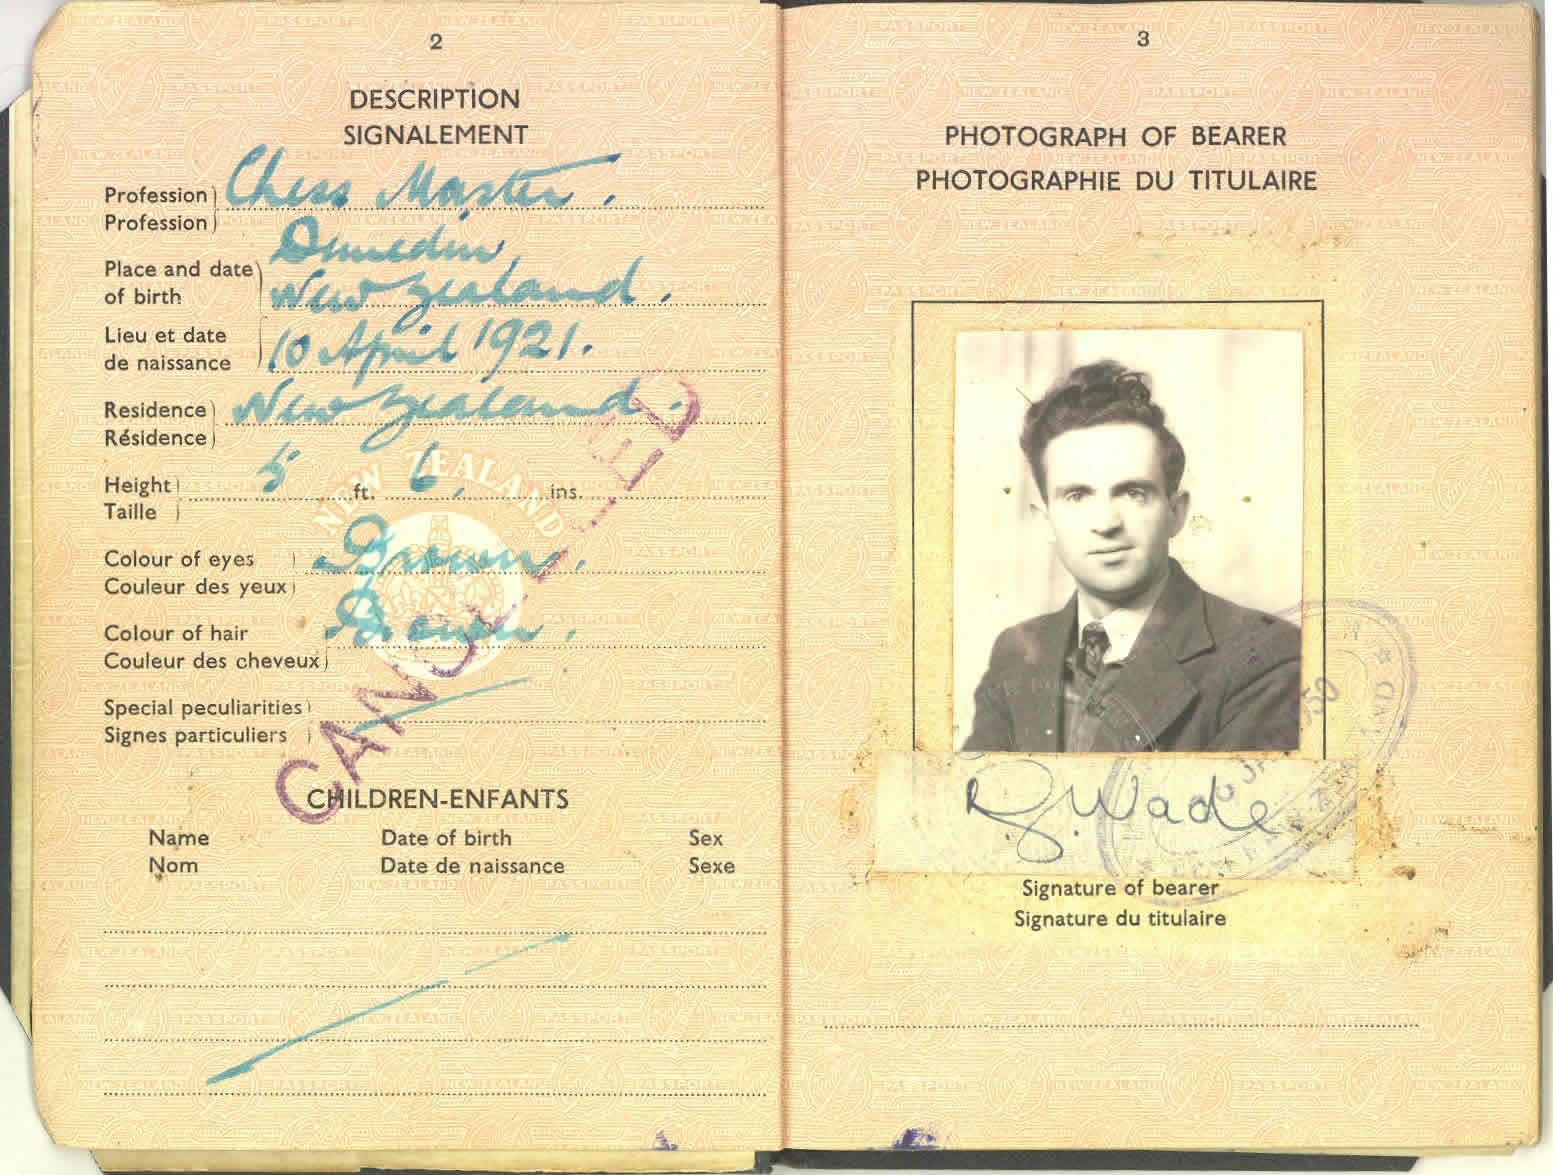 2
DESCRIPTION
SIGNALEMENT
Profession Chess Master.
Profession
Place and date Dunedin,
of birth New Zealand.
Lieu et date
de naissance 10 April 1921.
Residence New Zealand.
Résidence
Height 5 ft. 6, ins.
Taille
Colour of eyes Brown.
Couleur des yeux
Colour of hair Brown.
Couleur des cheveux
Special peculiarities
Signes particuliers
NEW ZEALAND
CANCELLED
CHILDREN-ENFANTS
Name Date of birth Sex
Nom Date de naissance Sexe
3
PHOTOGRAPH OF BEARER
PHOTOGRAPHIE DU TITULAIRE
R.G. Wade
Signature of bearer
Signature du titulaire